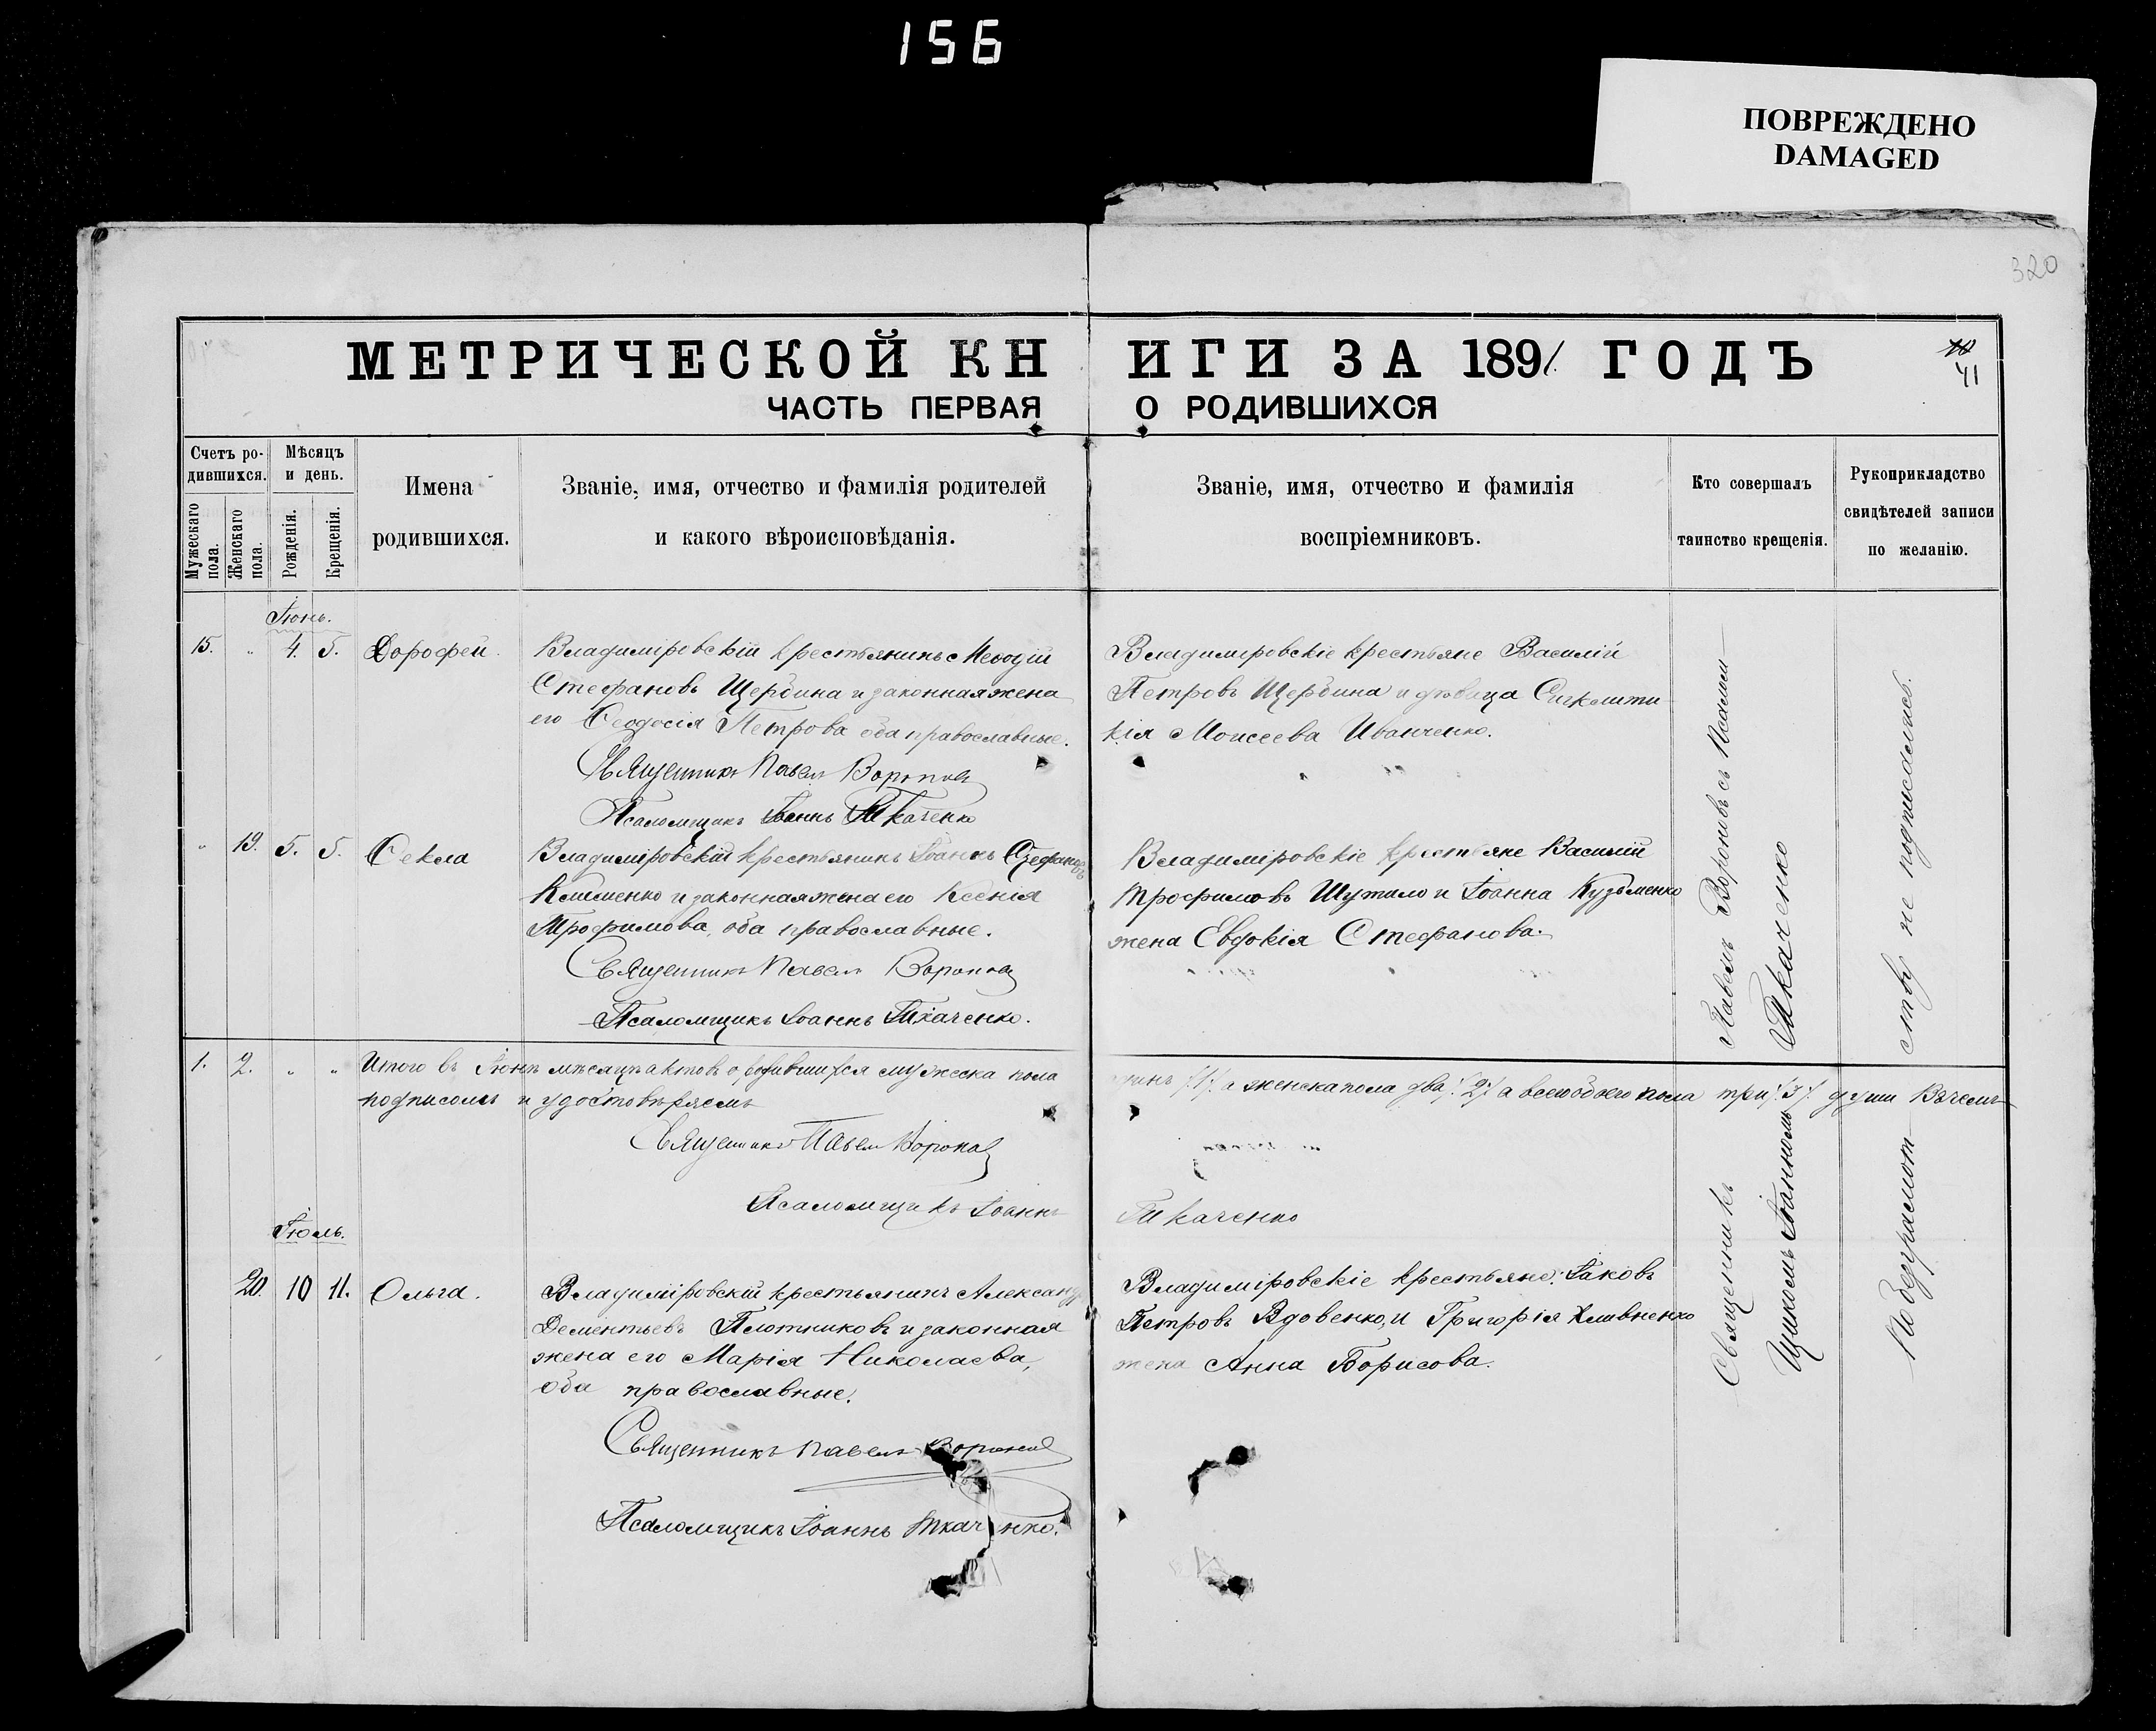 156
ПОВРЕЖДЕНО
DAMAGED
320
МЕТРИЧЕСКОЙ КНИГИ ЗА 1891 ГОДЪ
41
ЧАСТЬ ПЕРВАЯ О РОДИВШИХСЯ
Счетъ родившихся.
Мужескаго пола.
Женскаго пола.
Мѣсяцъ и день.
Рожденія.
Крещенія.
Имена
родившихся.
Званіе, имя, отчество и фамилія родителей
и какого вѣроисповѣданія.
Званіе, имя, отчество и фамилія
воспріемниковъ.
Кто совершалъ
таинство крещенія.
Рукоприкладство
свидѣтелей записи
по желанію.
Іюнь.
15. " 4. 5. Дорофей.
Владиміровскій крестьянинъ Меѳодій
Стефановъ Щербина и законная жена
его Ѳеодосія Петрова оба православные.
Священникъ Павелъ Вороновъ
Псаломщикъ Іоаннъ Ткаченко
Владиміровскіе крестьяне Василій
Петровъ Щербина и дѣвица
кія Моисеева Иванченко.
" 19. 5. 5. Ѳекла
Владиміровскій крестьянинъ Іоаннъ Стефановъ
Клименко и законная жена его Ксенія
Трофимова, оба православные.
Священникъ Павелъ Вороновъ
Псаломщикъ Іоаннъ Ткаченко.
Владиміровскіе крестьяне Василій
Трофимовъ Шутило и Іоанна Кузьменко
жена Евдокія Стефанова.
1. 2. " " Итого въ Іюнѣ мѣсяцѣ актовъ о родившихся мужеска пола одинъ /1/ а женска пола два /2/ а всего обоего пола три /3/ души Въ чемъ
подписомъ и удостовѣряемъ
Священникъ Павелъ Вороновъ
Псаломщикъ Іоаннъ Ткаченко
Іюль.
20. 10 11. Ольга.
Владиміровскій крестьянинъ Александръ
Дементьевъ Плотниковъ и законная
жена его Марія Николаева,
оба православные.
Священникъ Павелъ Вороновъ
Псаломщикъ Іоаннъ Ткаченко.
Владиміровскіе крестьяне: Іаковъ
Петровъ Вдовенко, и Григорія
жена Анна Борисова.
Священникъ Павелъ Вороновъ съ Псалом-
щикомъ Іоанномъ Ткаченко
По безграмот-
ству не подписались.